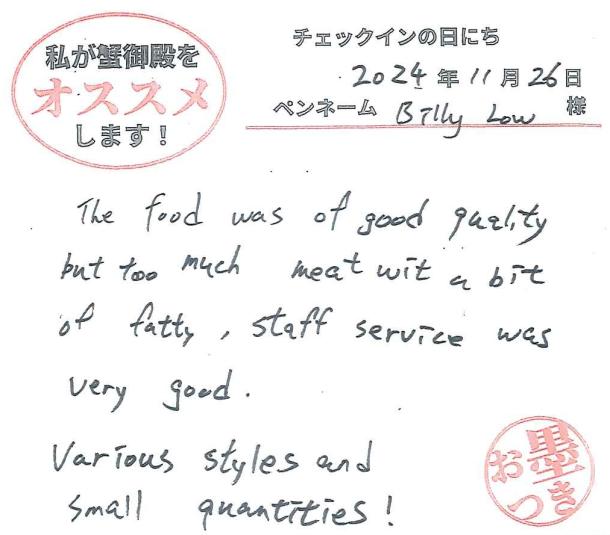 私が蟹御殿を
オススメ
します！
チェックインの日にち
2024年11月26日
ペンネーム Billy Low 様
The food was of good quality
but too much meat wit a bit
of fatty, staff service was
very good.
Various styles and
small quantities!
お墨
つき